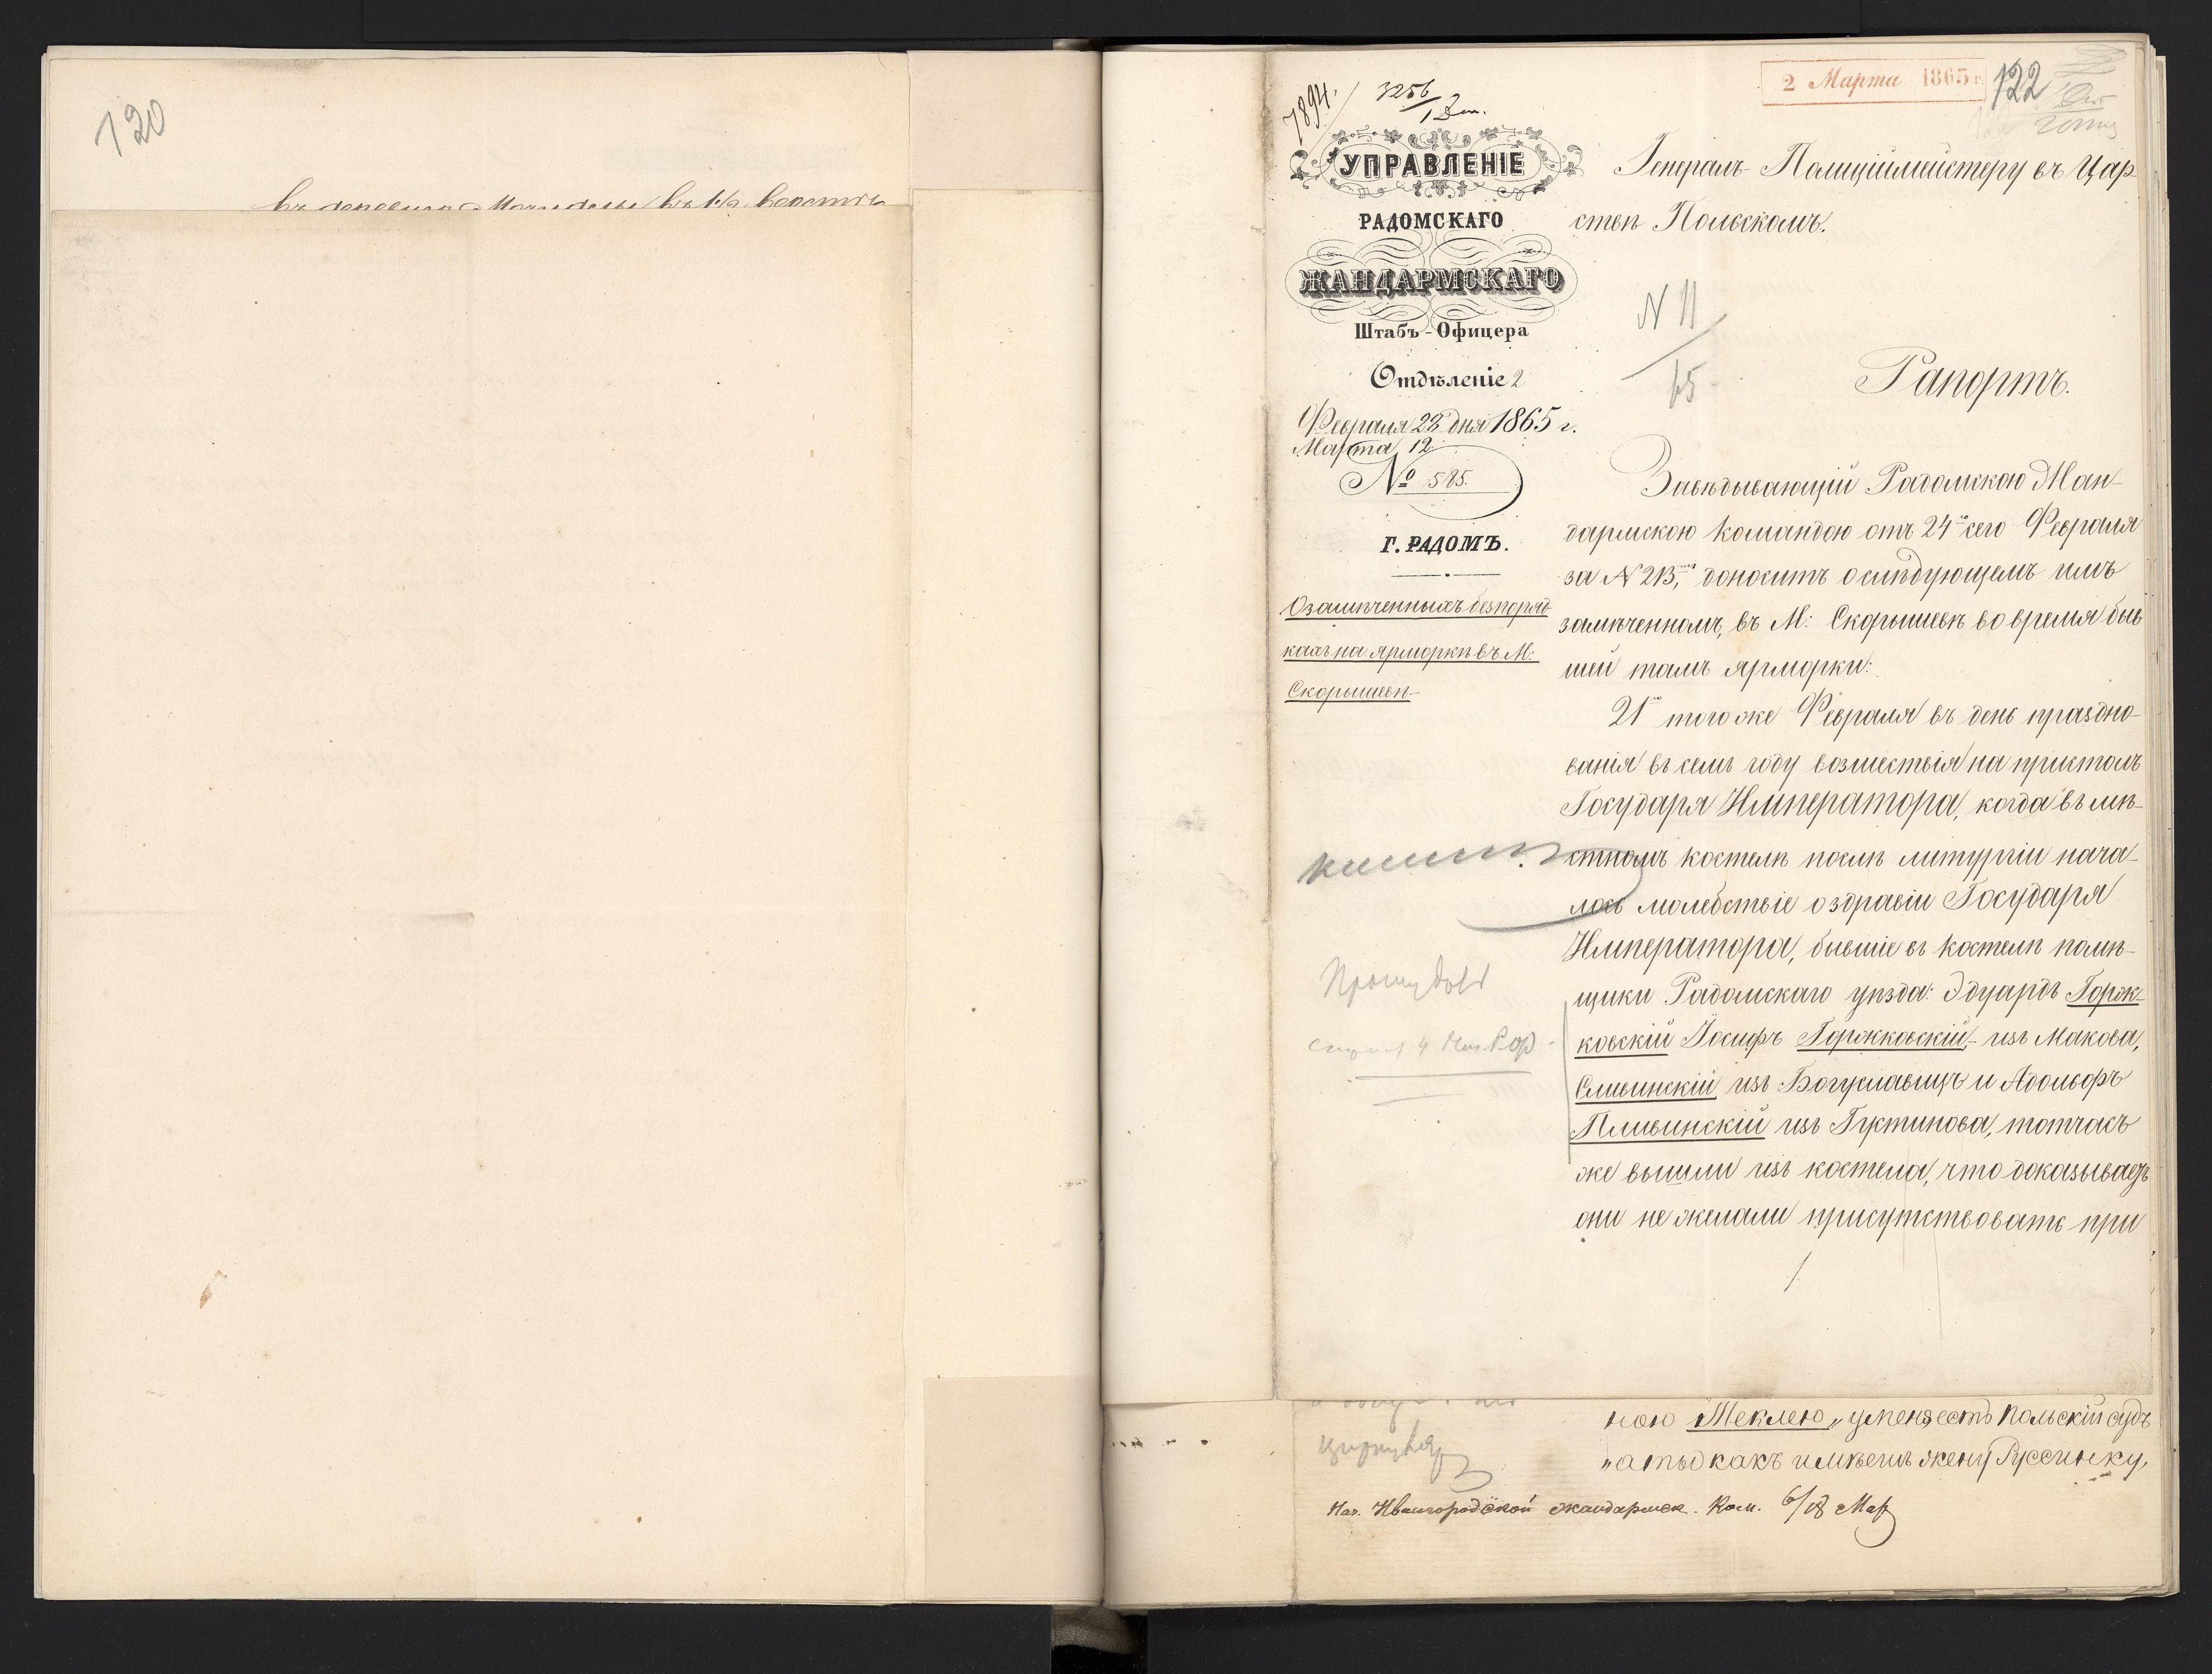 120
въ деревнѣ
верстѣ
7894.
3256
2 Марта 1865 г.
122
УПРАВЛЕНІЕ
РАДОМСКАГО
ЖАНДАРМСКАГО
Штабъ-Офицера
Отдѣленіе 2
Февраля 28 дня 1865 г.
Марта 12
№ 585.
Г. РАДОМЪ.
О замѣченныхъ безпоряд-
кахъ на ярморкѣ въ М:
Скорышевѣ.
Генералъ-Полиціймейстеру въ Цар-
ствѣ Польскомъ.
N 11
65
Рапортъ.
Завѣдывающій Радомскою Жан-
дармскою командою отъ 24го сего Февраля
за N 213, доноситъ о слѣдующемъ имъ
замѣченномъ, въ М: Скорышевѣ во время быв
шей тамъ ярморки:
21го того же Февраля въ день праздно-
ванія въ семъ году возшествія на престолъ
Государя Императора, когда въ мѣ-
стномъ костелѣ послѣ литургіи нача-
лось молебствіе о здравіи Государя
Императора, бывшіе въ костелѣ помѣ-
щики Радомскаго уѣзда: Эдуардъ Горж-
ковскій Іосифъ Горжковскій,- изъ Макова,
Сливинскій изъ Богуславицъ и Адольфъ
Пливинскій изъ Густинова, тотчасъ
же вышли изъ костела, что доказываетъ
они не желали присутствовать при
Прошу
циркуляр
ною Теклею, „у меня есть Польскій судъ
„а ты какъ имѣешь жену Руссинку,
Нач. Ивангородской жандармск. Ком. 6/18 Мар